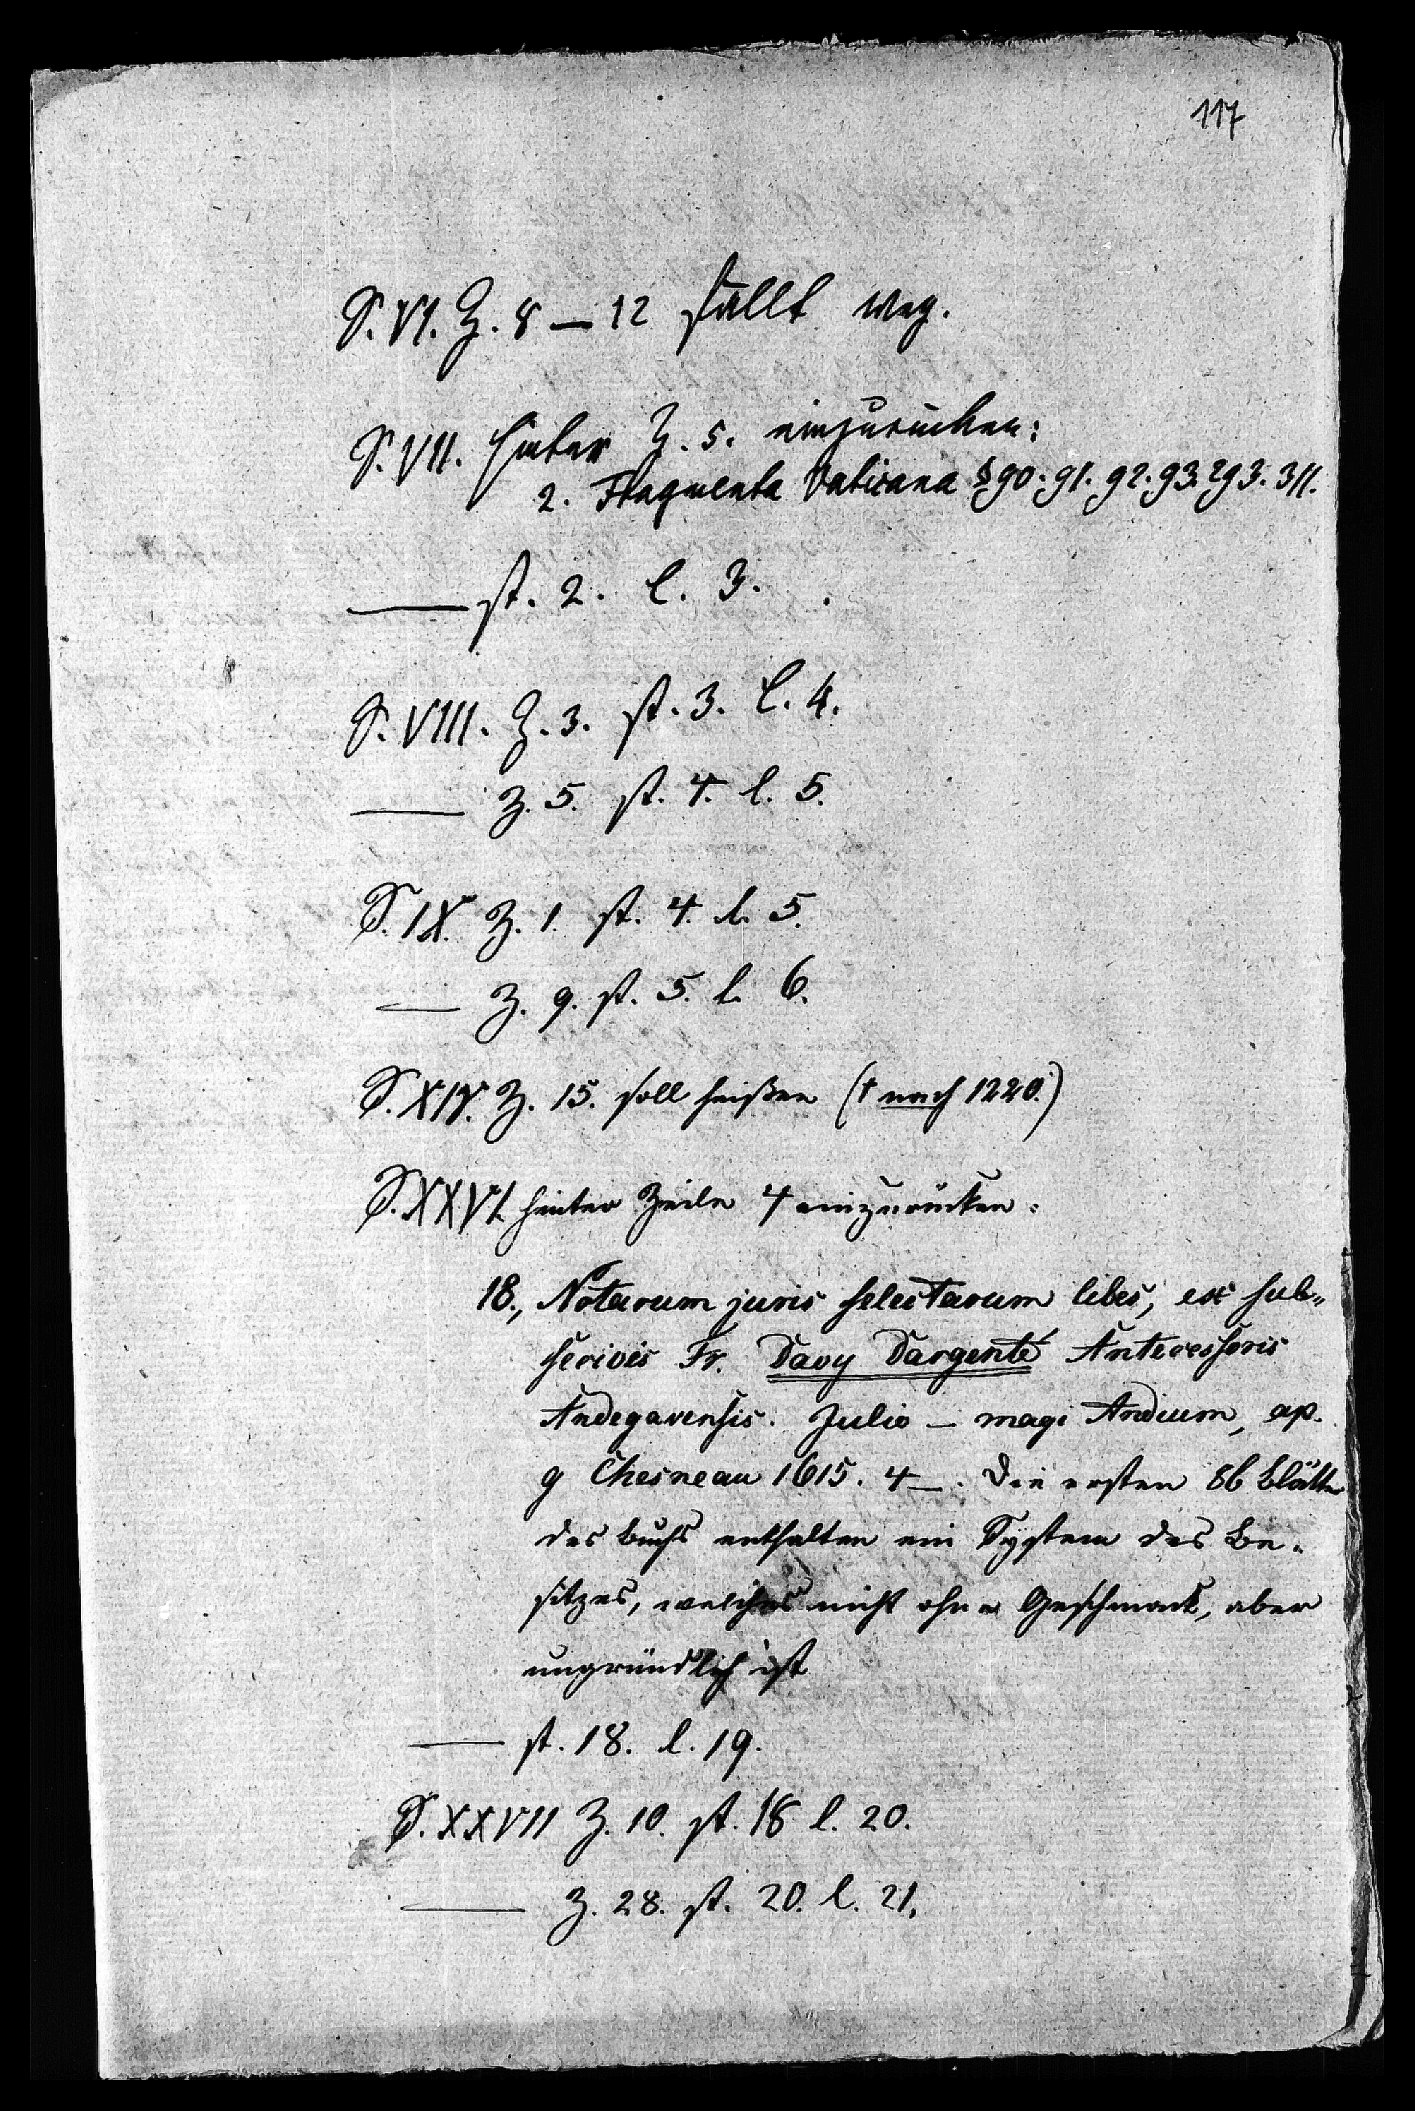 117
S. VI. Z. 8 — 12 fällt weg.
S. VII. hinter Z. 5. einzurücken:
2. Fragmenta Vaticana § 90. 91. 92. 93. 293. 311.
— st. 2. l. 3.
S. VIII. Z. 3. st. 3. l. 4.
— Z. 5. st. 4. l. 5.
S. IX. Z. 1. st. 4. l. 5.
— Z. 9. st. 5. l. 6.
S. XIV. Z. 15. soll heißen († nach 1220.)
S. XXVI. hinter Zeile 4 einzurücken:
18., Notarum juris selectarum liber, ex sub-
secivis Fr. Davy Dargenté Antecessoris
Andegavensis. Julio – magi Andium, ap.
g Chesneau 1615. 4—. Die ersten 86 Blätter
des Buchs enthalten ein System des Be-
sitzes, welches nicht ohne Geschmack, aber
ungründlich ist
— st. 18. l. 19.
S. XXVII Z. 10. st. 18 l. 20.
— Z. 28. st. 20. l. 21.